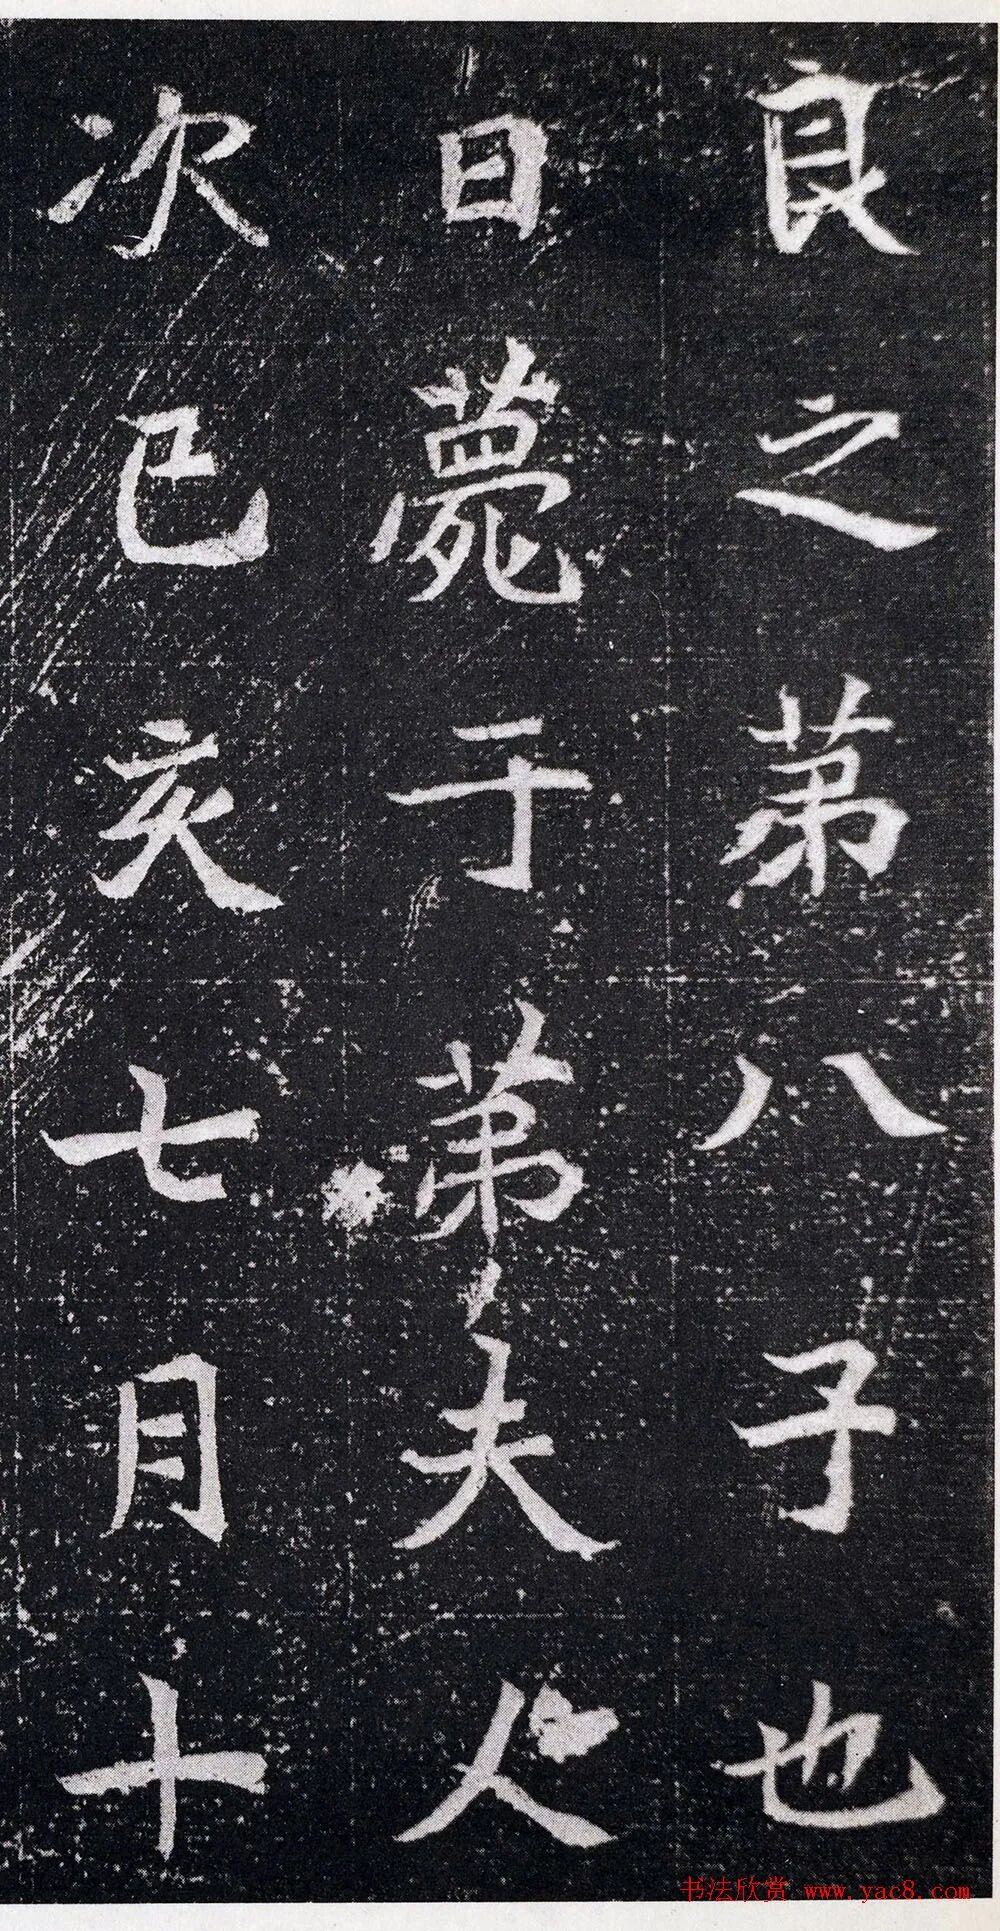 良之苐八子也
日薨于苐夫人
次已亥七月十
书法欣赏 www.yac8.com